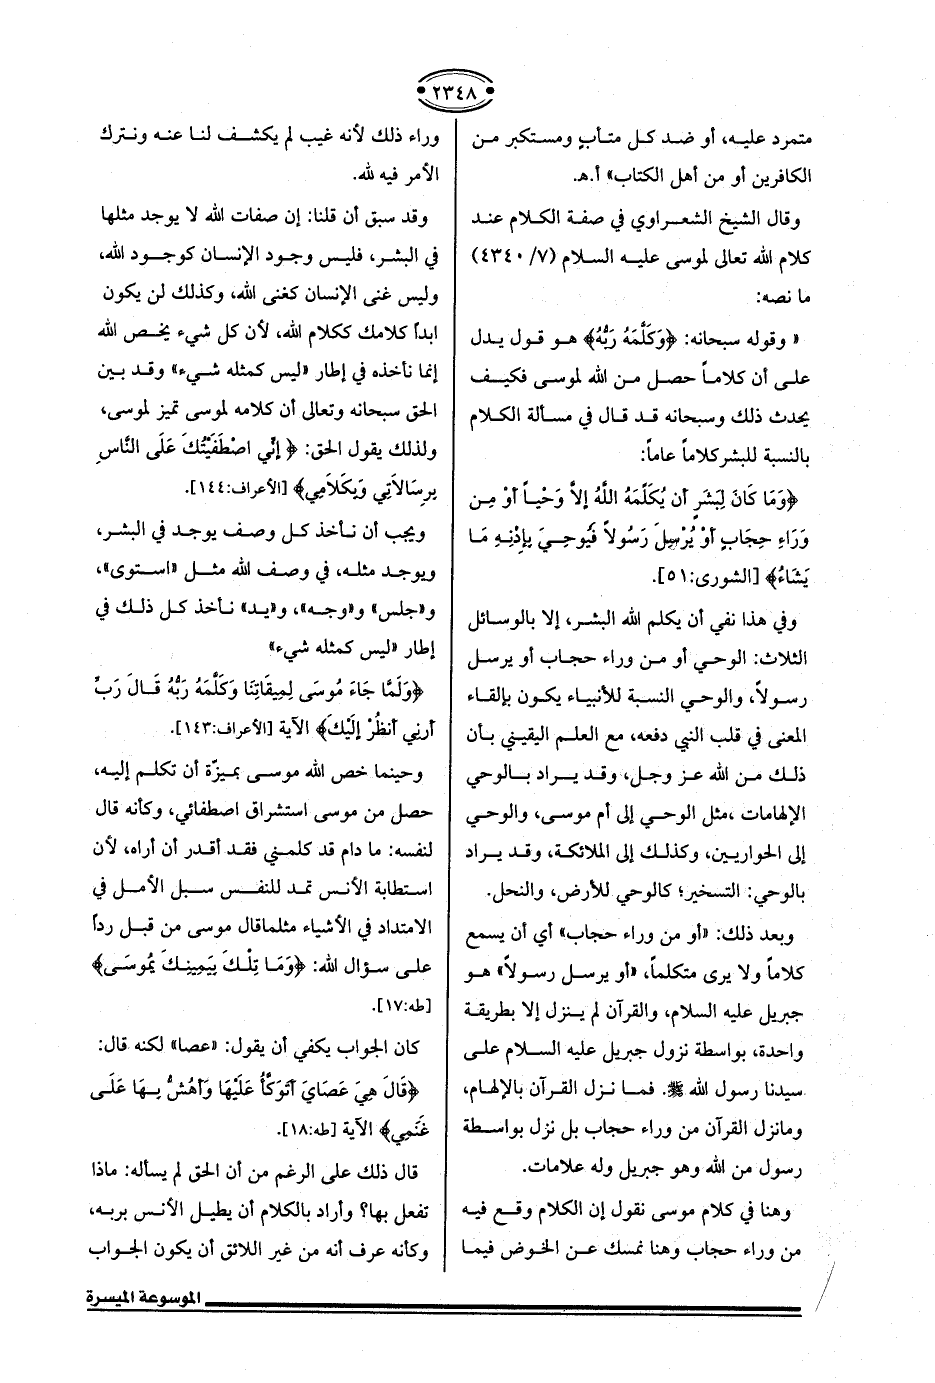 ٢٣٤٨
متمرد عليه، أو ضد كل متأبٍ ومستكبر من
الكافرين أو من أهل الكتاب» أ.هـ.
وقال الشيخ الشعراوي في صفة الكلام عند
كلام الله تعالى لموسى عليه السلام (٧/ ٤٣٤٠)
ما نصه:
« وقوله سبحانه: ﴿وَكَلَّمَهُ رَبُّهُ﴾ هو قول يدل
على أن كلاماً حصل من الله لموسى فكيف
يحدث ذلك وسبحانه قد قال في مسألة الكلام
بالنسبة للبشر كلاماً عاماً:
﴿وَمَا كَانَ لِبَشَرٍ أَن يُكَلِّمَهُ اللَّهُ إِلاَّ وَحْياً أَوْ مِن
وَرَاءِ حِجَابٍ أَوْ يُرْسِلَ رَسُولاً فَيُوحِيَ بِإِذْنِهِ مَا
يَشَاءُ﴾ [الشورى:٥١].
وفي هذا نفي أن يكلم الله البشر، إلا بالوسائل
الثلاث: الوحي أو من وراء حجاب أو يرسل
رسولاً، والوحي النسبة للأنبياء يكون بإلقاء
المعنى في قلب النبي دفعه، مع العلم اليقيني بأن
ذلك من الله عز وجل، وقد يراد بالوحي
الإلهامات ،مثل الوحي إلى أم موسى، والوحي
إلى الحواريين، وكذلك إلى الملائكة، وقد يراد
بالوحي: التسخير؛ كالوحي للأرض، والنحل.
وبعد ذلك: «أو من وراء حجاب» أي أن يسمع
كلاماً ولا يرى متكلماً، «أو يرسل رسولاً» هو
جبريل عليه السلام، والقرآن لم ينزل إلا بطريقة
واحدة، بواسطة نزول جبريل عليه السلام على
سيدنا رسول الله ﷺ. فما نزل القرآن بالإلهام،
ومانزل القرآن من وراء حجاب بل نزل بواسطة
رسول من الله وهو جبريل وله علامات.
وهنا في كلام موسى نقول إن الكلام وقع فيه
من وراء حجاب وهنا نمسك عن الخوض فيما
وراء ذلك لأنه غيب لم يكشف لنا عنه ونترك
الأمر فيه لله.
وقد سبق أن قلنا: إن صفات الله لا يوجد مثلها
في البشر، فليس وجود الإنسان كوجود الله،
وليس غنى الإنسان كغنى الله، وكذلك لن يكون
ابداً كلامك ككلام الله، لأن كل شيء يخص الله
إنما نأخذه في إطار «ليس كمثله شيء» وقد بين
الحق سبحانه وتعالى أن كلامه لموسى تميز لموسى،
ولذلك يقول الحق: ﴿ إِنِّي اصْطَفَيْتُكَ عَلَى النَّاسِ
بِرِسَالاَتِي وَبِكَلاَمِي﴾ [الأعراف:١٤٤].
ويجب أن نأخذ كل وصف يوجد في البشر،
ويوجد مثله، في وصف الله مثل «استوى»،
و«جلس» و«وجه»، و«يد» نأخذ كل ذلك في
إطار «ليس كمثله شيء»
﴿وَلَمَّا جَاءَ مُوسَى لِمِيقَاتِنَا وَكَلَّمَهُ رَبُّهُ قَالَ رَبِّ
أَرِنِي أَنظُرْ إِلَيْكَ﴾ الآية [الأعراف:١٤٣].
وحينما خص الله موسى بميزّة أن تكلم إليه،
حصل من موسى استشراق اصطفائي، وكأنه قال
لنفسه: ما دام قد كلمني فقد أقدر أن أراه، لأن
استطابة الأنس تمد للنفس سبل الأمل في
الامتداد في الأشياء مثلماقال موسى من قبل رداً
على سؤال الله: ﴿وَمَا تِلْكَ بِيَمِينِكَ يمُوسَى﴾
[طه:١٧].
كان الجواب يكفي أن يقول: «عصا» لكنه قال:
﴿قَالَ هِيَ عَصَايَ أَتَوَكَّأُ عَلَيْهَا وَأَهُشُّ بِهَا عَلَى
غَنَمِي﴾ الآية [طه:١٨].
قال ذلك على الرغم من أن الحق لم يسأله: ماذا
تفعل بها؟ وأراد بالكلام أن يطيل الأنس بربه،
وكأنه عرف أنه من غير اللائق أن يكون الجواب
الموسوعة الميسرة